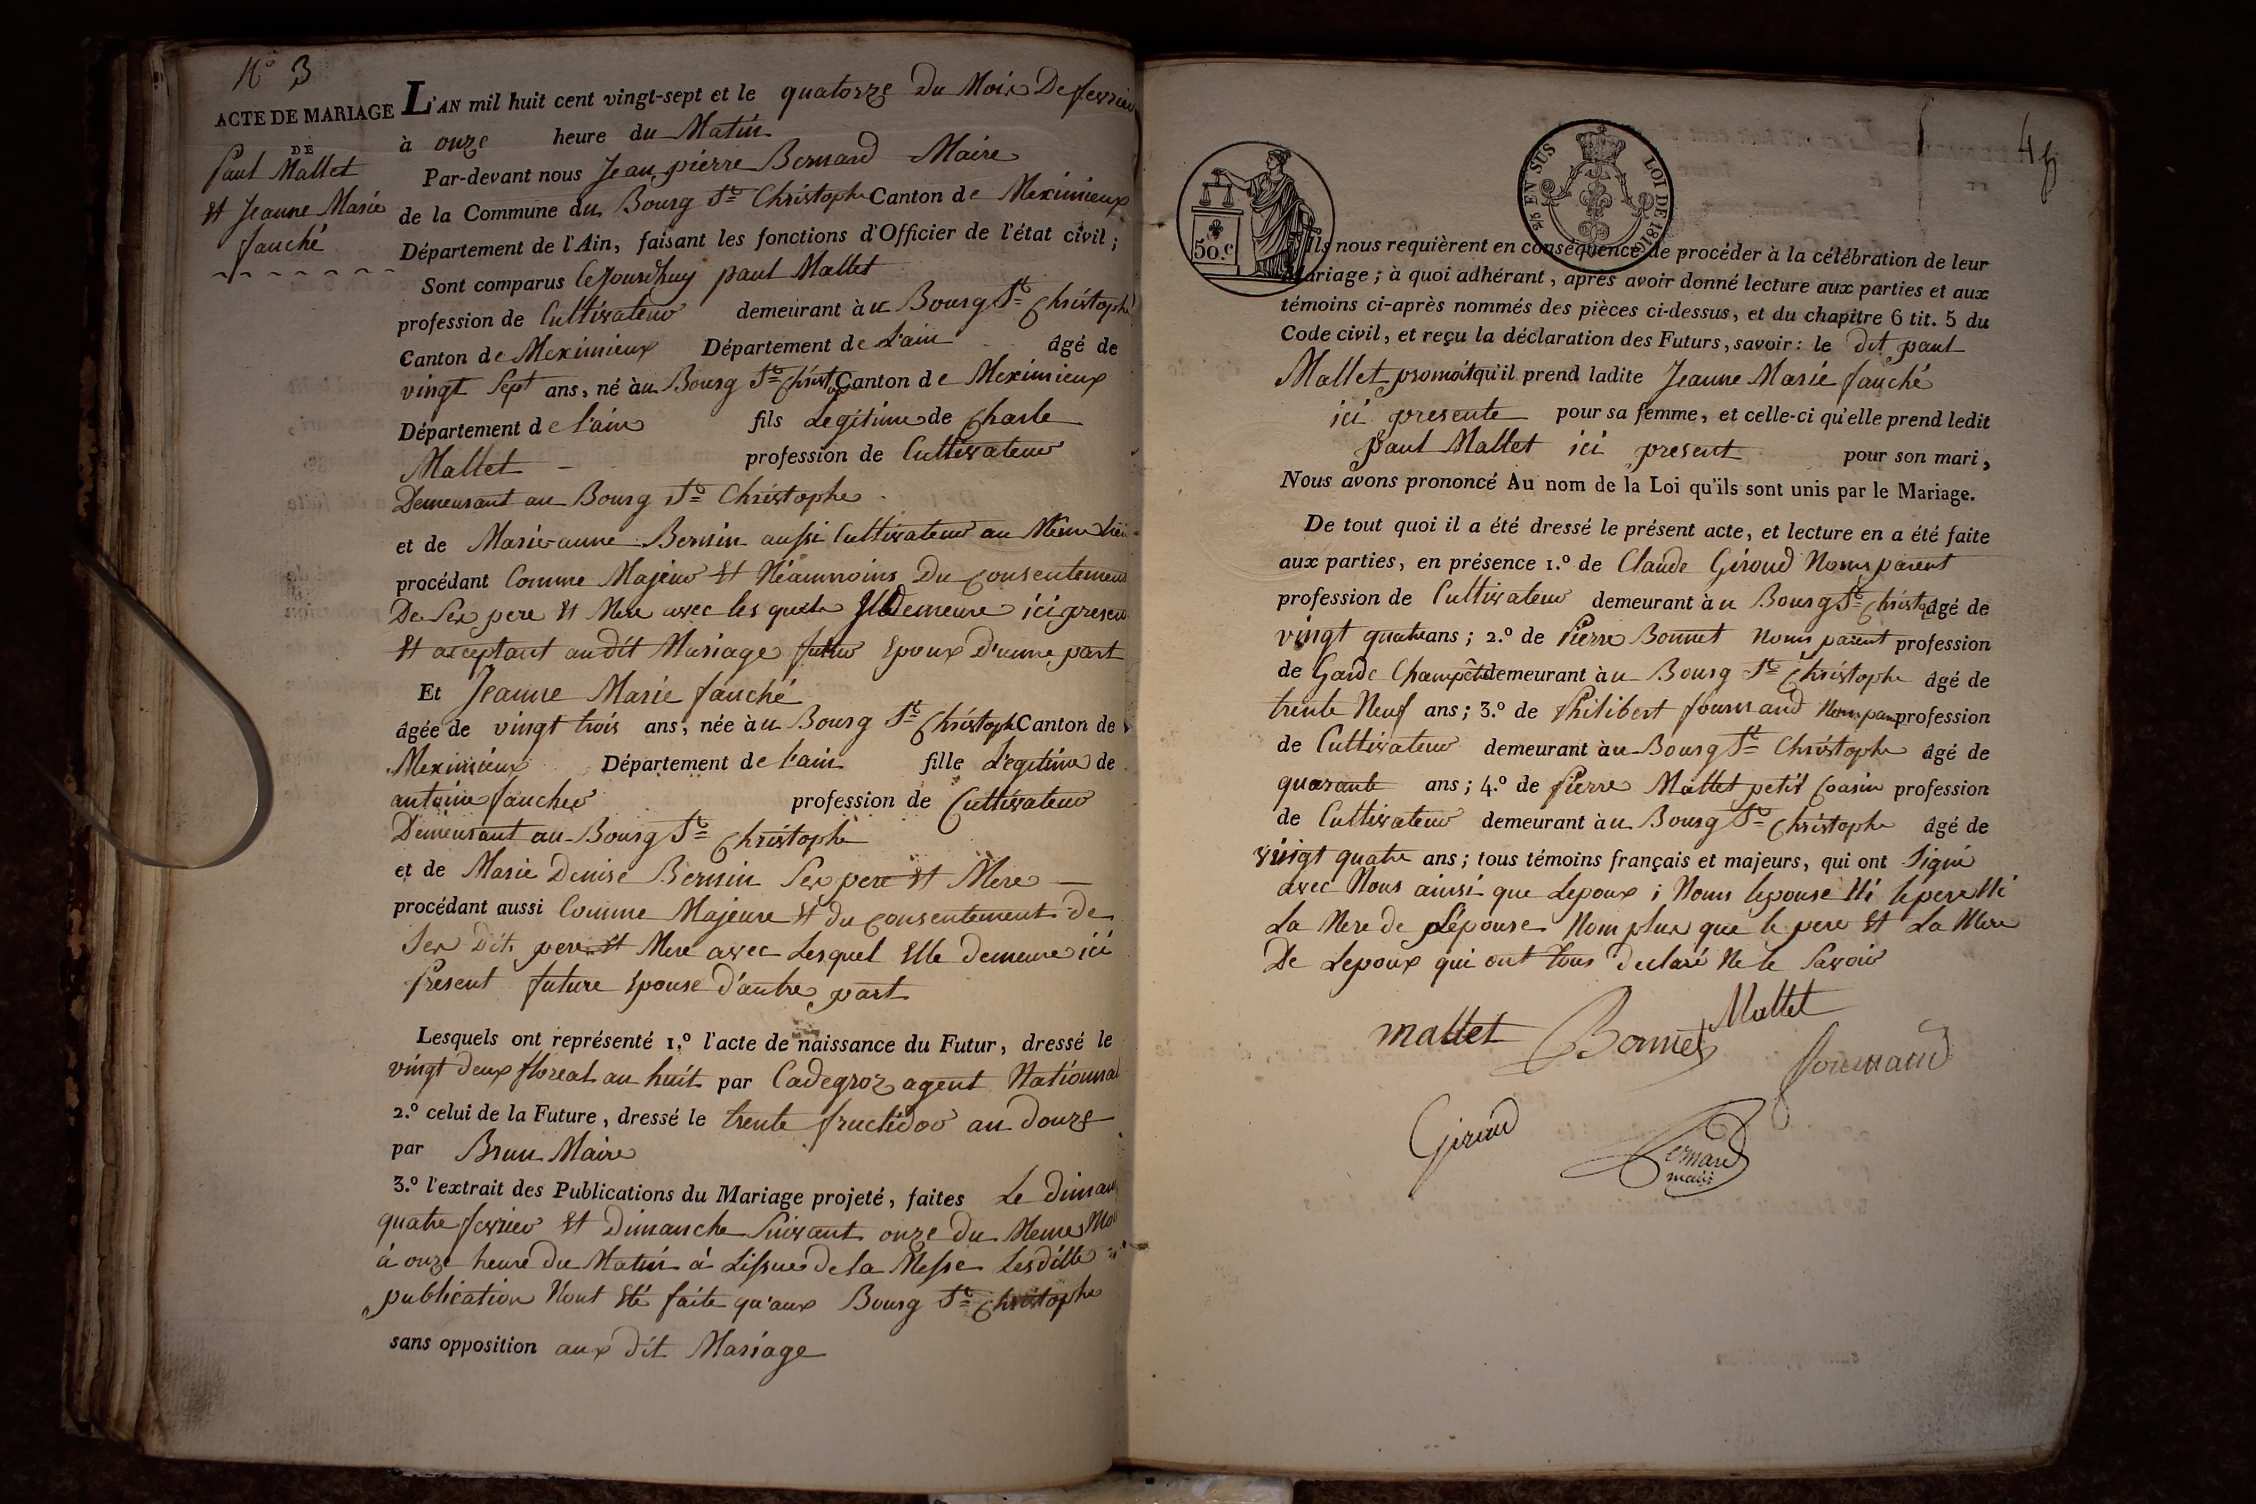 N.° 3
ACTE DE MARIAGE
DE
Paul Mallet
Et Jeanne Marie
fauché
L'AN mil huit cent vingt-sept et le quatorze Du Mois De fevrier
à onze heure du Matin
Par-devant nous Jean pierre Bernard Maire
de la Commune du Bourg St Christophe Canton de Meximieux
Département de l'Ain, faisant les fonctions d'Officier de l'état civil;
Sont comparus Cejourdhuy paul Mallet
profession de Cultivateur demeurant à u Bourg St Christophe
Canton de Meximieux Département de L'ain âgé de
vingt Sept ans, né àu Bourg St Christ. Canton de Meximieux
Département de l'ain fils Legitime de Charle
Mallet profession de Cultivateur
Demeurant au Bourg St Christophe
et de Marie anne Bernin aussi Cultivateur au Meme Lieu
procédant Comme Majeur Et Néamnoins Du Consentement
De Ses pere Et Mere avec les quels Il Demeure ici present
Et acceptant au dit Mariage futur Epoux D'unne part
Et Jeanne Marie fauché
âgée de vingt trois ans, née àu Bourg St Christophe Canton de
Meximieux Département de l'ain fille Legitime de
antoine faucher profession de Cultivateur
Demeurant au Bourg St Christophe
et de Marie Denise Bernin Ses pere Et Mere
procédant aussi Comme Majeure Et du Consentement de
Ses Dit pere Et Mere avec Lesquel Elle demeure ici
Present future Epouse d'autre part
Lesquels ont représenté 1.° l'acte de naissance du Futur, dressé le
vingt deux floreal an huit par Cadegroz agent Nationnal
2.° celui de la Future, dressé le trente fructidor an douze
par Brun Maire
3.° l'extrait des Publications du Mariage projeté, faites Le diman
quatre fevrier Et Dimanche Suivant onze du Meme Mois
à onze heure du Matin à Lissue de la Messe Lesditte
publication Nont Eté faite qu'aux Bourg St Christophe
sans opposition aux dit Mariage
50.c
25 EN SUS LOI DE 1816
4
Ils nous requièrent en conséquence de procéder à la célébration de leur
Mariage; à quoi adhérant, après avoir donné lecture aux parties et aux
témoins ci-après nommés des pièces ci-dessus, et du chapitre 6 tit. 5 du
Code civil, et reçu la déclaration des Futurs, savoir: le dit paul
Mallet promoit qu'il prend ladite Jeanne Marie fauché
ici presente pour sa femme, et celle-ci qu'elle prend ledit
paul Mallet ici present pour son mari,
Nous avons prononcé Au nom de la Loi qu'ils sont unis par le Mariage.
De tout quoi il a été dressé le présent acte, et lecture en a été faite
aux parties, en présence 1.° de Claude Giroud Nom parent
profession de Cultivateur demeurant à u Bourg St Christo âgé de
vingt quatre ans; 2.° de Pierre Bonnet Nom parent profession
de Garde Champêtre demeurant à u Bourg St Christophe âgé de
trente Neuf ans; 3.° de Philibert fournand Nom paren profession
de Cultivateur demeurant àu Bourg St Christophe âgé de
quarante ans; 4.° de Pierre Mallet petit Cousin profession
de Cultivateur demeurant àu Bourg St Christophe âgé de
vingt quatre ans; tous témoins français et majeurs, qui ont Signé
avec Nous ainsi que Lepoux; Nom lepouse Ni le pere Ni
La Mere de Lépouse Nom plus que le pere Et La Mere
De Lepoux qui ont tous declaré Ne le Savoir
mallet Bonnet Mallet
fournand
Giroud
Bernard
maire